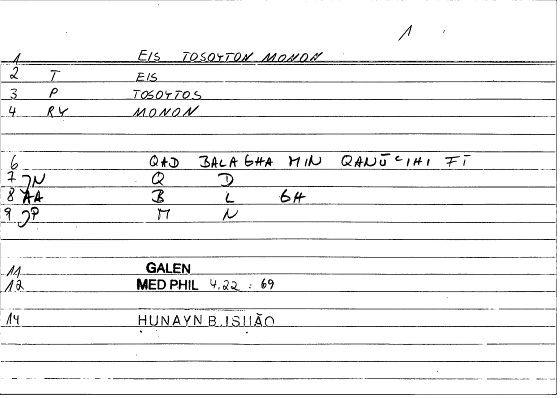 1
1 EIS TOSOYTON MONON
2 T EIS
3 P TOSOYTOS
4 RY MONON
6 QAD BALAGHA MIN QANŪʿIHI FĪ
7 JN Q D
8 AA B L GH
9 JP M N
11 GALEN
12 MED PHIL 4.22 : 69
14 HUNAYN B. ISḤĀQ